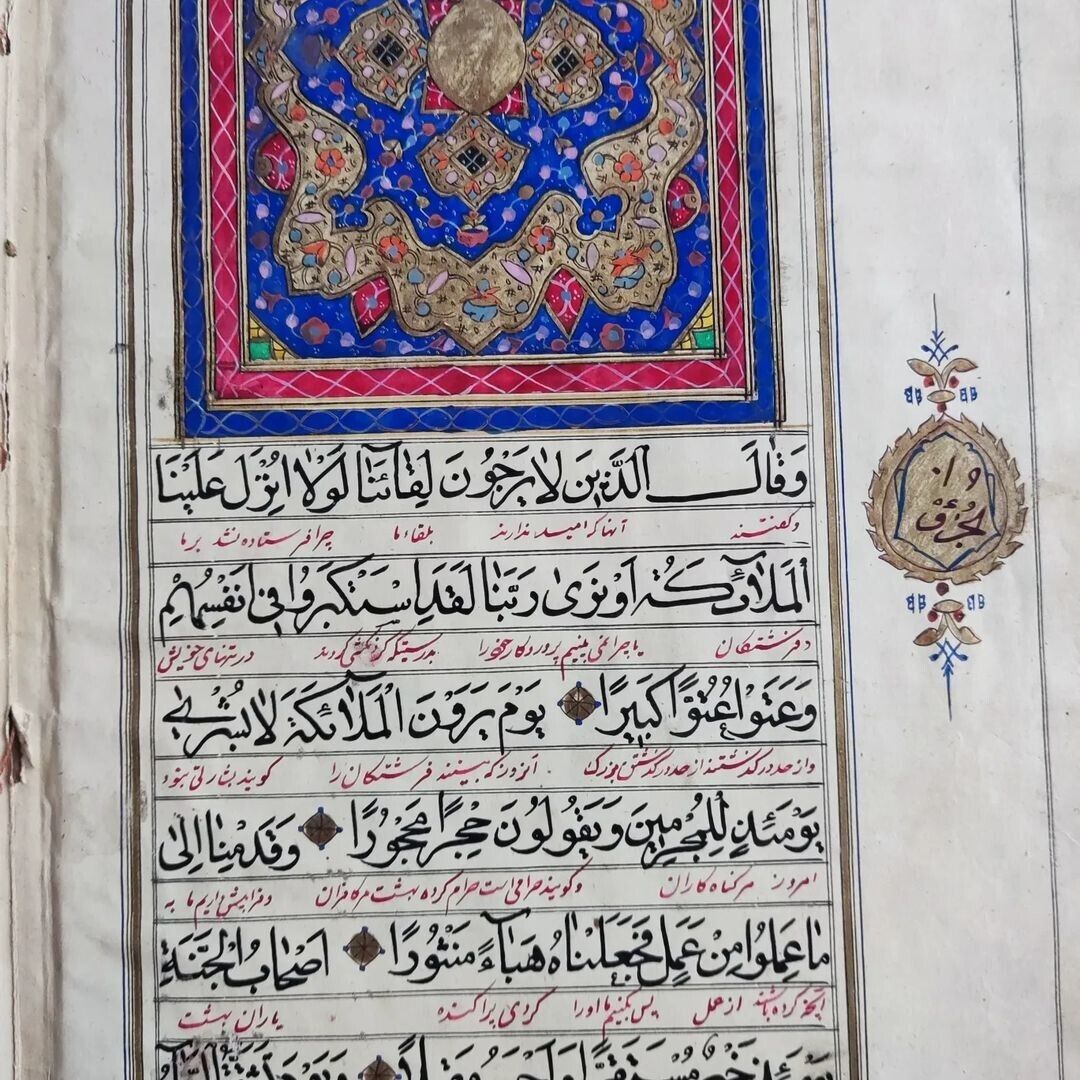 وَقَالَ الَّذِينَ لَا يَرْجُونَ لِقَائَنَا لَوْلَا اُنْزِلَ عَلَيْنَا
وگفتند آنها که امید ندارند بلقاء ما چرا فرستاده نشد بر ما
الْمَلَآئِكَةُ اَوْ نَرَى رَبَّنَا لَقَدِ اسْتَكْبَرُوا فِي اَنْفُسِهِمْ
فرشتگان یا چرا نمی بینیم پروردگار خود را بدرستیکه گردنکشی کردند در تنهای خویش
وَعَتَوْا عُتُوًّا كَبِيرًا يَوْمَ يَرَوْنَ الْمَلَآئِكَةَ لَا بُشْرٰى
واز حد در گذشتند از حد در گذشتنی بزرگ آنروز که ببینند فرشتگان را گویند بشارتی نبود
يَوْمَئِذٍ لِلْمُجْرِمِينَ وَيَقُولُونَ حِجْرًا مَحْجُورًا وَقَدِمْنَا اِلٰى
امروز مر گناه کاران و گویند حرامی است حرام کرده بهشت بر کافران ما به
مَا عَمِلُوا مِنْ عَمَلٍ فَجَعَلْنَاهُ هَبَآءً مَنْثُورًا اَصْحَابُ الْجَنَّةِ
آنچه کرده باشند از عمل پس بکنیم ما او را گردی پراکنده یاران بهشت
يَوْمَئِذٍ خَيْرٌ مُسْتَقَرًّا وَاَحْسَنُ مَقِيلًا وَيَوْمَ تَشَقَّقُ السَّمَآءُ